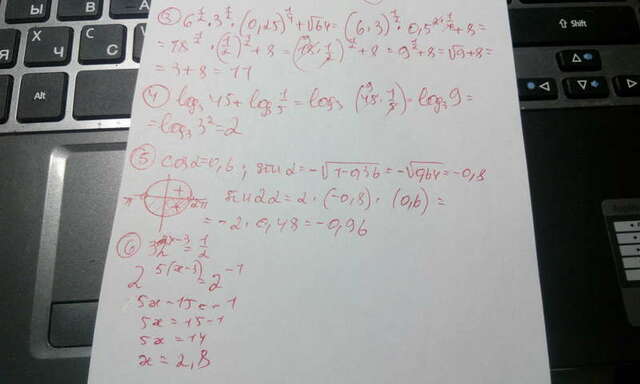 ③ 6^½ · 3^½ · (0,25)^¼ + √64 = (6·3)^½ · 0,5^2·¼ + 8 =
= 18^½ · (½)^½ + 8 = (18 · ½)^½ + 8 = 9^½ + 8 = √9 + 8 =
= 3 + 8 = 11
④ log₃ 45 + log₃ 1/5 = log₃ (45 · 1/5) = log₃ 9 =
= log₃ 3² = 2
⑤ cos α = 0,6 ; sin α = -√1-0,36 = -√0,64 = -0,8
π + 2π sin 2α = 2 · (-0,8) · (0,6) =
= -2 · 0,48 = -0,96
⑥ 32^x-3 = 1/2
2^5(x-3) = 2^-1
5x - 15 = -1
5x = 15 - 1
5x = 14
x = 2,8
Ы
В
Я
Ч
С
Alt
PgUp
PgDn